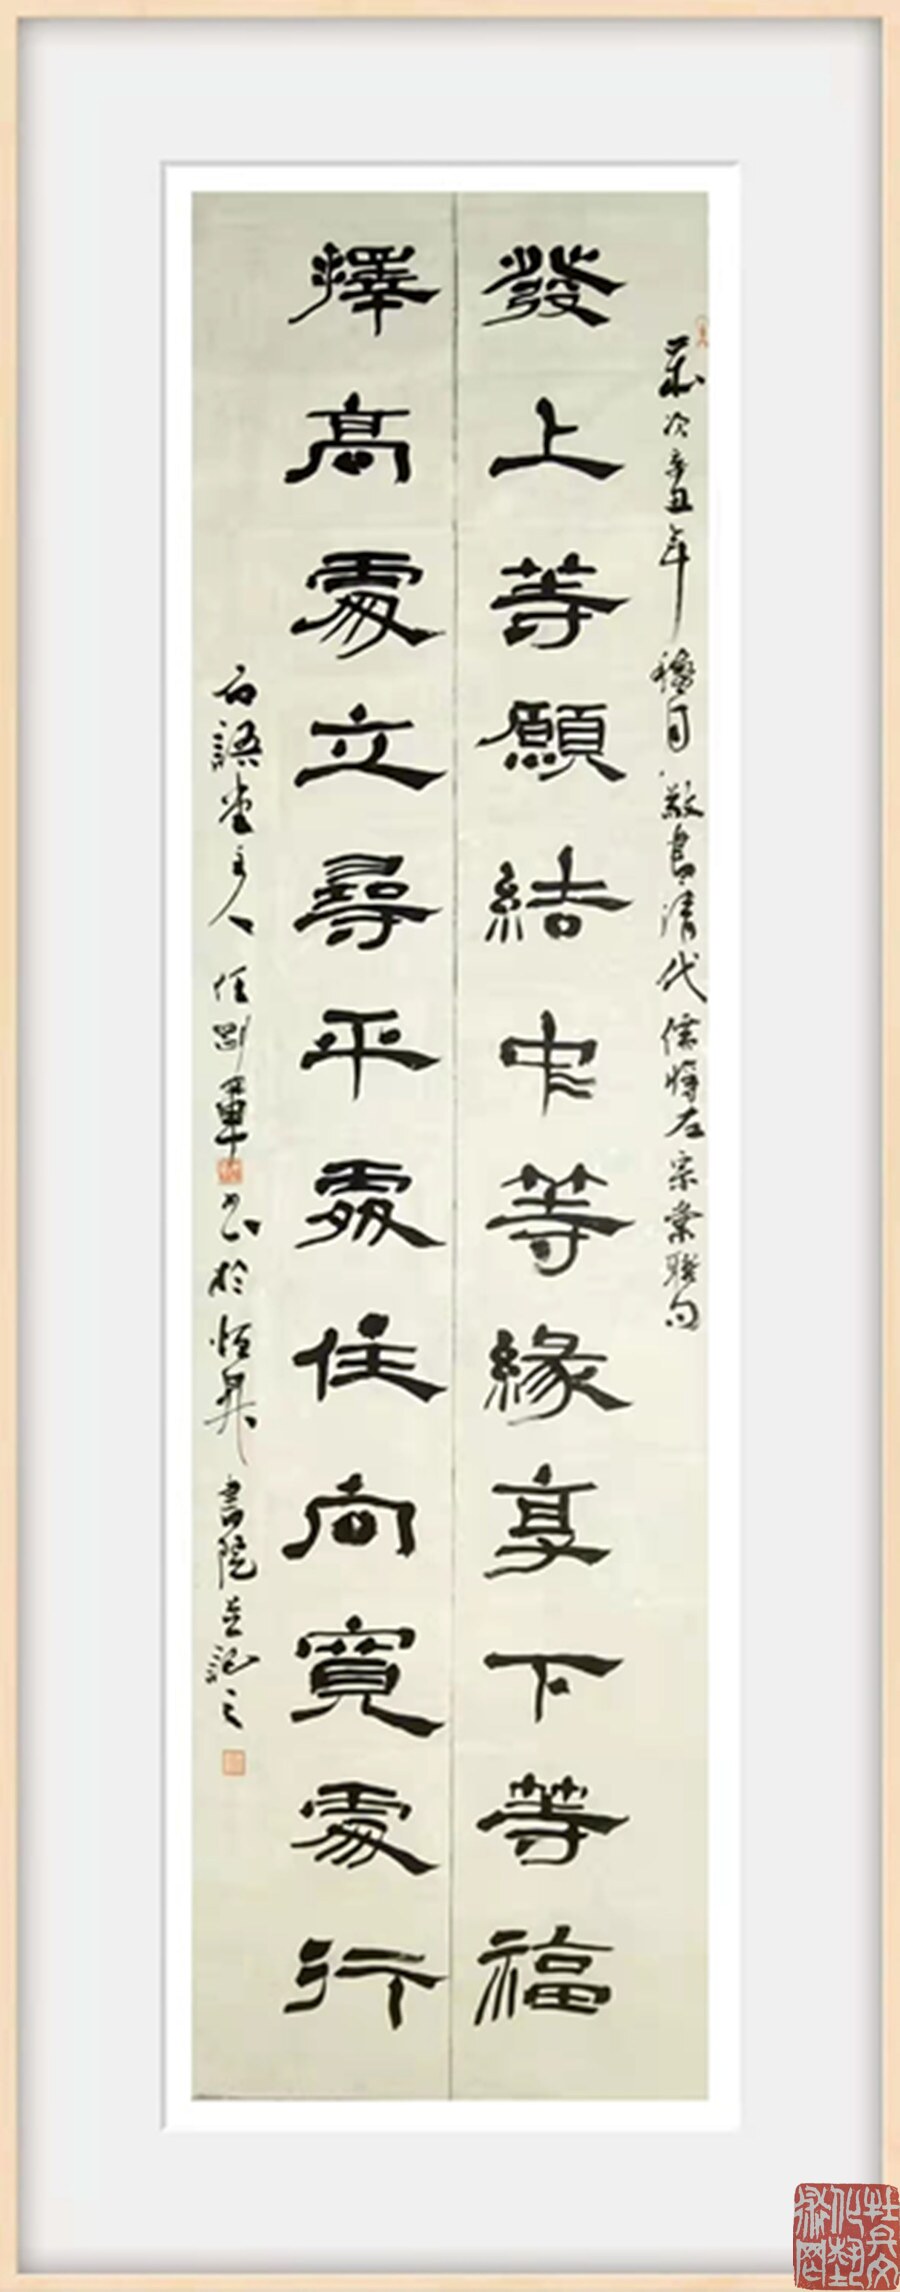 歲次辛丑年穐月敬書清代儒將左宗棠聯句
發上等願結中等緣享下等福
擇高處立尋平處住向寬處行
石語堂主人任剛軍書於恒昇書院並記之